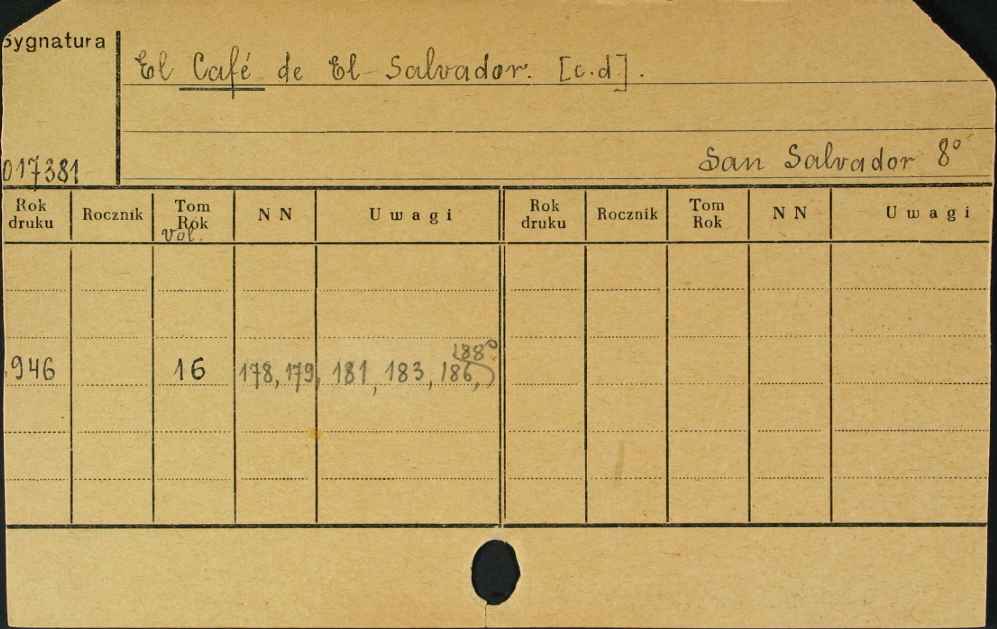 Sygnatura
El Café de El Salvador. [c.d].
017381
San Salvador 8°
Rok druku Rocznik Tom Rok NN Uwagi Rok druku Rocznik Tom Rok NN Uwagi
vol.
188
946 16 178, 179, 181, 183, 186,